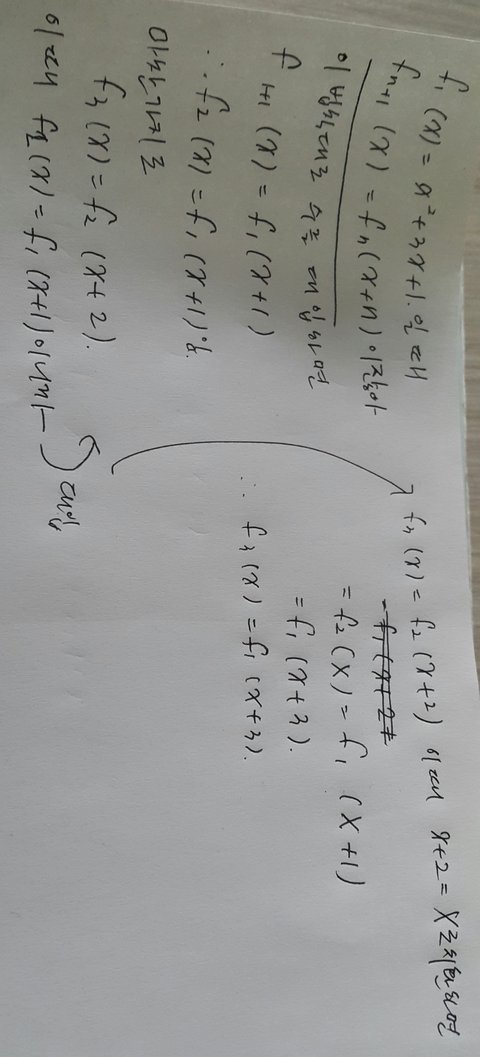 f₁(x) = x²+3x+1. 일 때
fₙ₊₁ (x) = fₙ(x+n) 이잖아
이 법칙대로 수를 대입하면
f ₁₊₁ (x) = f₁(x+1)
∴ f₂ (x) = f₁ (x+1)임.
마찬가지로
f₃(x) = f₂ (x+2).
이 때 f₂(x) = f₁ (x+1)이니까 대입
f₃ (x) = f₂ (x+2) 이 때 x+2 = X로 치환하면
= f₂ (X) = f₁ (X+1)
= f₁ (x+3).
∴ f₃ (x) = f₁ (x+3).